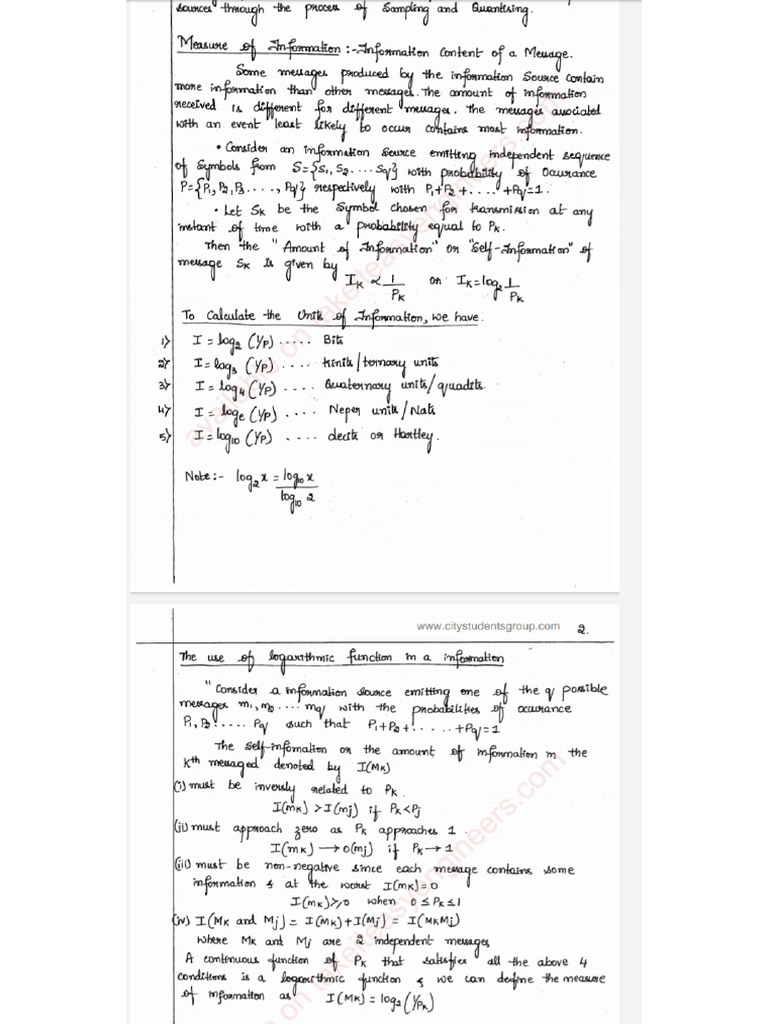 sources" through the process of Sampling and Quantising.
Measure of Information :- Information content of a Message.
Some messages produced by the information Source contain
more information than other messages. The amount of information
received is different for different messages. The messages associated
with an event least likely to occur contains most information.
• Consider an information source emitting independent sequence
of Symbols from S={S1, S2 .... Sq} with probability of Occurance
P={P1, P2, P3 ....., Pq} respectively with P1+P2+.....+Pq=1.
• Let SK be the Symbol chosen for transmission at any
instant of time with a probability equal to PK.
Then the "Amount of Information" or "Self-Information" of
message SK is given by
IK ∝ 1/PK or IK = log2 1/PK
To Calculate the Units of Information, we have.
1) I = log2 (1/P) ..... Bits
2) I = log3 (1/P) .... trinits/ternary units
3) I = log4 (1/P) .... Quaternary units/quadits.
4) I = loge (1/P) .... Neper units/Nats
5) I = log10 (1/P) .... decits or Hartley.
Note :- log2 x = log10 x / log10 2
www.citystudentsgroup.com 2.
The use of logarithmic function in a information
"Consider a information source emitting one of the q possible
messages m1, m2 .... mq with the probabilities of occurance
P1, P2 ..... Pq such that P1+P2+......+Pq=1
The self-infomation or the amount of information in the
Kth messaged denoted by I(MK)
(i) must be inversly related to PK.
I(mK) > I(mj) if PK<Pj
(ii) must approach zero as PK approaches 1.
I(mK) → 0(mj) if PK → 1
(iii) must be non-negative since each message contains some
information & at the worst I(mK)=0
I(mK)≥0 when 0≤PK≤1
(iv) I(MK and Mj) = I(MK)+I(Mj) = I(MKMj)
where MK and Mj are 2 independent messages
A continuous function of PK that satisfies all the above 4
conditions is a logarithmic function & we can define the measure
of information as I(MK) = log2(1/PK)
available on takeiteasyengineers.com
on takeiteasyengineers.com